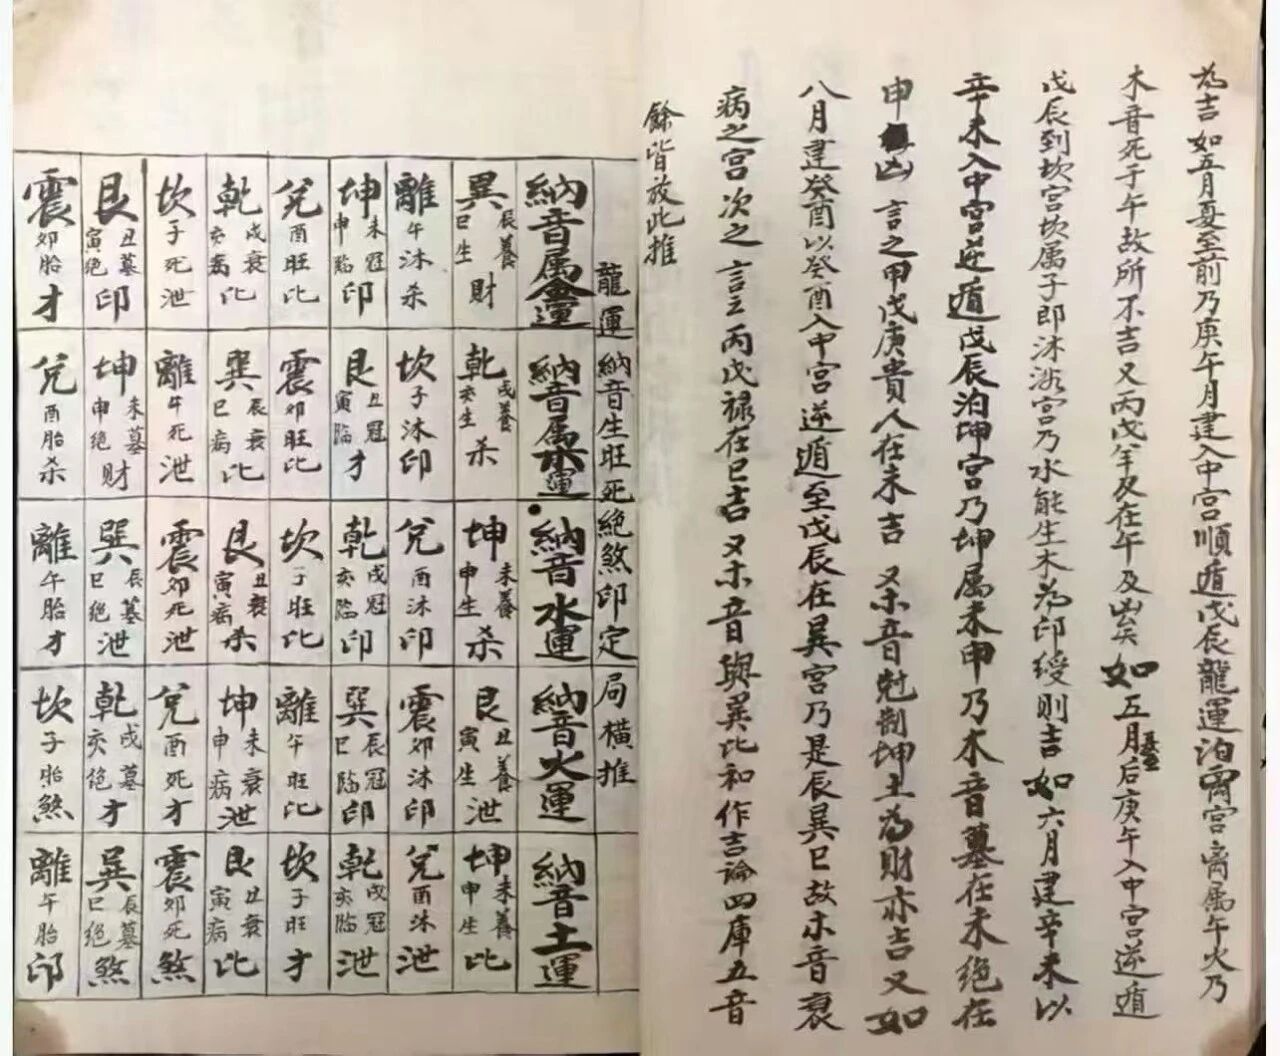 為吉如五月夏至前乃庚午月建入中宮順遁戊辰龍運泊离宮离属午火乃
木音死于午故所不吉又丙戊年及在午及凶矣如五月夏至后庚午入中宮逆遁
戊辰到坎宮坎属子郎沐浴宮乃水能生木為印綬則吉如六月建辛未以
辛未入中宮逆遁戊辰泊坤宮乃坤属未申乃木音墓在未絕在
申凶言之甲戊庚貴人在未吉又木音尅制坤土為財亦吉又如
八月建癸酉以癸酉入中宮逆遁至戊辰在巽宮乃是辰巽巳故木音衰
病之宮次之言之丙戊禄在巳吉又木音與巽比和作吉論四庫五音
餘皆放此推
龍運納音生旺死絕煞印定局橫推
納音属金運
巽辰養巳生財
離午沐杀
坤未冠申臨印
兌酉旺比
乾戌衰亥病比
坎子死泄
艮丑墓寅絕印
震卯胎才
納音属木運
乾戌養亥生杀
坎子沐印
艮丑冠寅臨才
震卯旺比
巽辰衰巳病比
離午死泄
坤未墓申絕財
兌酉胎杀
納音水運
坤未養申生杀
兌酉沐印
乾戌冠亥臨印
坎子旺比
艮丑衰寅病杀
震卯死泄
巽辰墓巳絕泄
離午胎才
納音火運
艮丑養寅生泄
震卯沐印
巽辰冠巳臨印
離午旺比
坤未衰申病泄
兌酉死才
乾戌墓亥絕才
坎子胎煞
納音土運
坤未養申生比
兌酉沐泄
乾戌冠亥臨泄
坎子旺才
艮丑衰寅病比
震卯死煞
巽辰墓巳絕煞
離午胎印